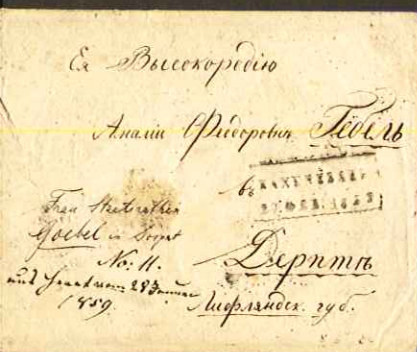 Ея Высокородію
Амаліи Ѳедоровнѣ Гёбель
въ
Frau Staatsräthin
Goebel in Dorpat
Дерптъ
No. 11.
28 Januar
1859.
Лифляндск. губ.